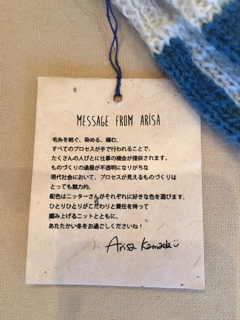 MESSAGE FROM ARISA
毛糸を紡ぐ、染める、編む、
すべてのプロセスが手で行われることで、
たくさんの人びとに仕事の機会が提供されます。
ものづくりの過程が不透明になりがちな
現代社会において、プロセスが見えるものづくりは
とっても魅力的。
配色はニッターさんがそれぞれに好きな色を選びます。
ひとりひとりがこだわりと責任を持って
編み上げるニットとともに、
あたたかい冬をお過ごしくださいね！
Arisa Kamada